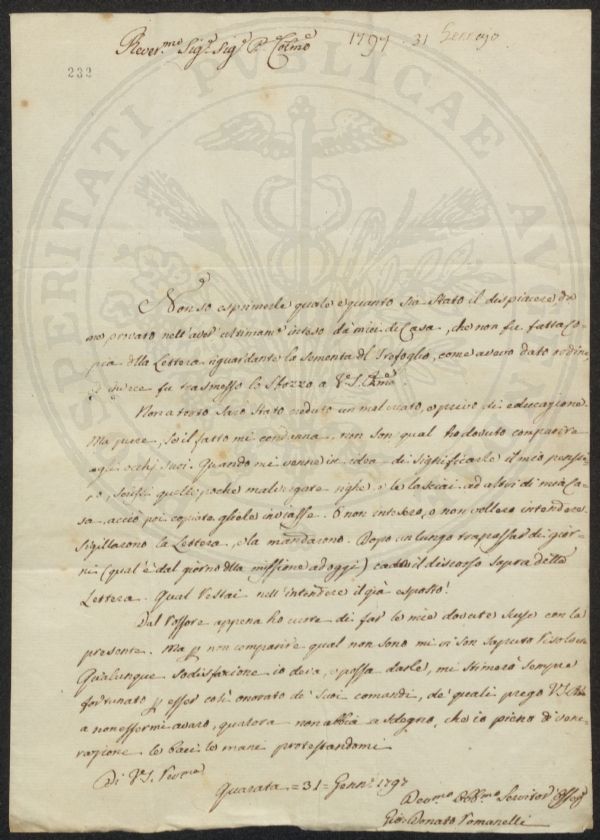 Rever.mo Sig.r Sig.r P.ne Colmo
1797. 31 Gennajo
232
PROSPERITATI PVBLICAE AV
Non so esprimerle quale e quanto sia stato il despiacere da
me provato nell'aver ultimamte inteso da' miei di Casa, che non fu fatta Co-
pia dlla Lettera riguardante la sementa dl Trefoglio, come avevo dato ordine,
ed invece fu trasmesso lo sfozzo a V.S. Rmo
Non a torto sarò stato creduto un malcreato, e privo di educazione.
Ma pure, se il fatto mi condanna, non son qual ho dovuto comparire
agli occhj suoi. Quando mi venne in idea di significarle il mio pensie-
ro, scrissi quelle poche malvergate righe, e le lasciai ad altri di mia Ca-
sa, acciò poi copiate gliele inviasse. O non intesero, o non vollero intendere;
sigillarono la Lettera, e la mandarono. Dopo un lungo trapassar di gior-
ni (qual è dal giorno dlla missione ad oggi) cadde il discorso sopra detta
Lettera. Qual restai nell'intendere il già esposto!
Dal rossore appena ho cuore di far le mie dovute scuse con la
presente. Ma p non comparire qual non sono mi vi son saputo risolvere
Qualunque sodisfazione io deva, e possa darle, mi stimerò sempre
fortunato p esser così onorato de' suoi comandi, de' quali prego V.S.
a non essermi avaro, qualora non abbia a sdegno, che io pieno di vene-
razione le baci le mani protestandomi
Di V.S. Revma
Quarata = 31 = Genn.o 1797
Dev.mo Obb.mo Servitor Osseq
Gio: Donato Romanelli